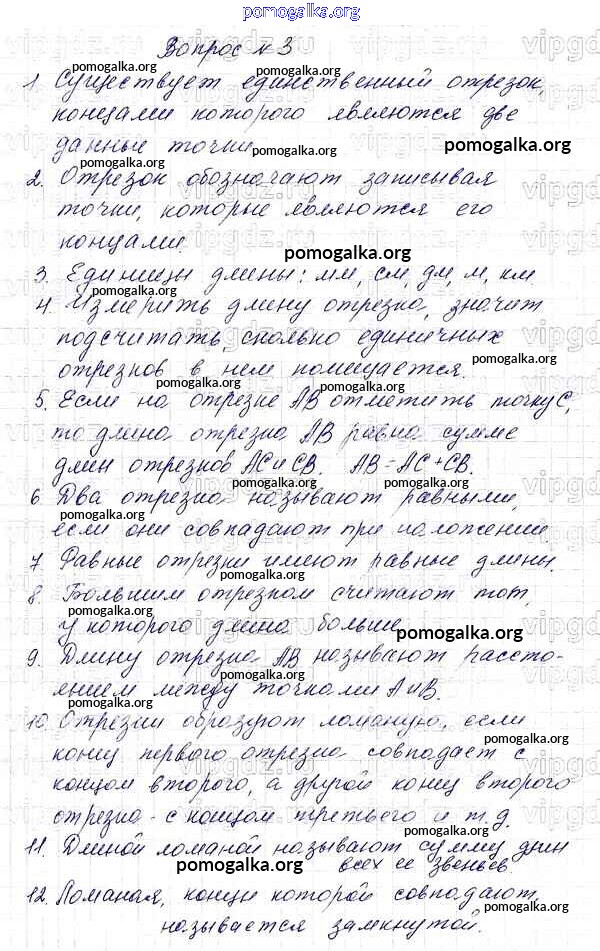 pomogalka.org
Вопрос № 3
1. Существует единственный отрезок,
концами которого являются две
данные точки.
pomogalka.org
pomogalka.org
2. Отрезок обозначают записывая
точки, которые являются его
концами.
pomogalka.org
3. Единицы длины: мм, см, дм, м, км.
pomogalka.org
4. Измерить длину отрезка, значит
подсчитать, сколько единичных
отрезков в нем помещается.
pomogalka.org
pomogalka.org
5. Если на отрезке AB отметить точку C,
то длина отрезка AB равна сумме
pomogalka.org
длин отрезков AC и CB. AB = AC + CB.
pomogalka.org
6. Два отрезка называют равными,
если они совпадают при наложении.
pomogalka.org
7. Равные отрезки имеют равные длины.
pomogalka.org
8. Большим отрезком считают тот,
pomogalka.org
у которого длина больше.
pomogalka.org
9. Длину отрезка AB называют рассто-
pomogalka.org
янием между точками A и B.
pomogalka.org
10. Отрезки образуют ломаную, если
pomogalka.org
конец первого отрезка совпадает с
концом второго, а другой конец второго
pomogalka.org
отрезка - с концом третьего и т.д.
pomogalka.org
11. Длиной ломаной называют сумму длин
всех ее звеньев.
pomogalka.org
12. Ломаная, концы которой совпадают,
pomogalka.org
называется замкнутой.